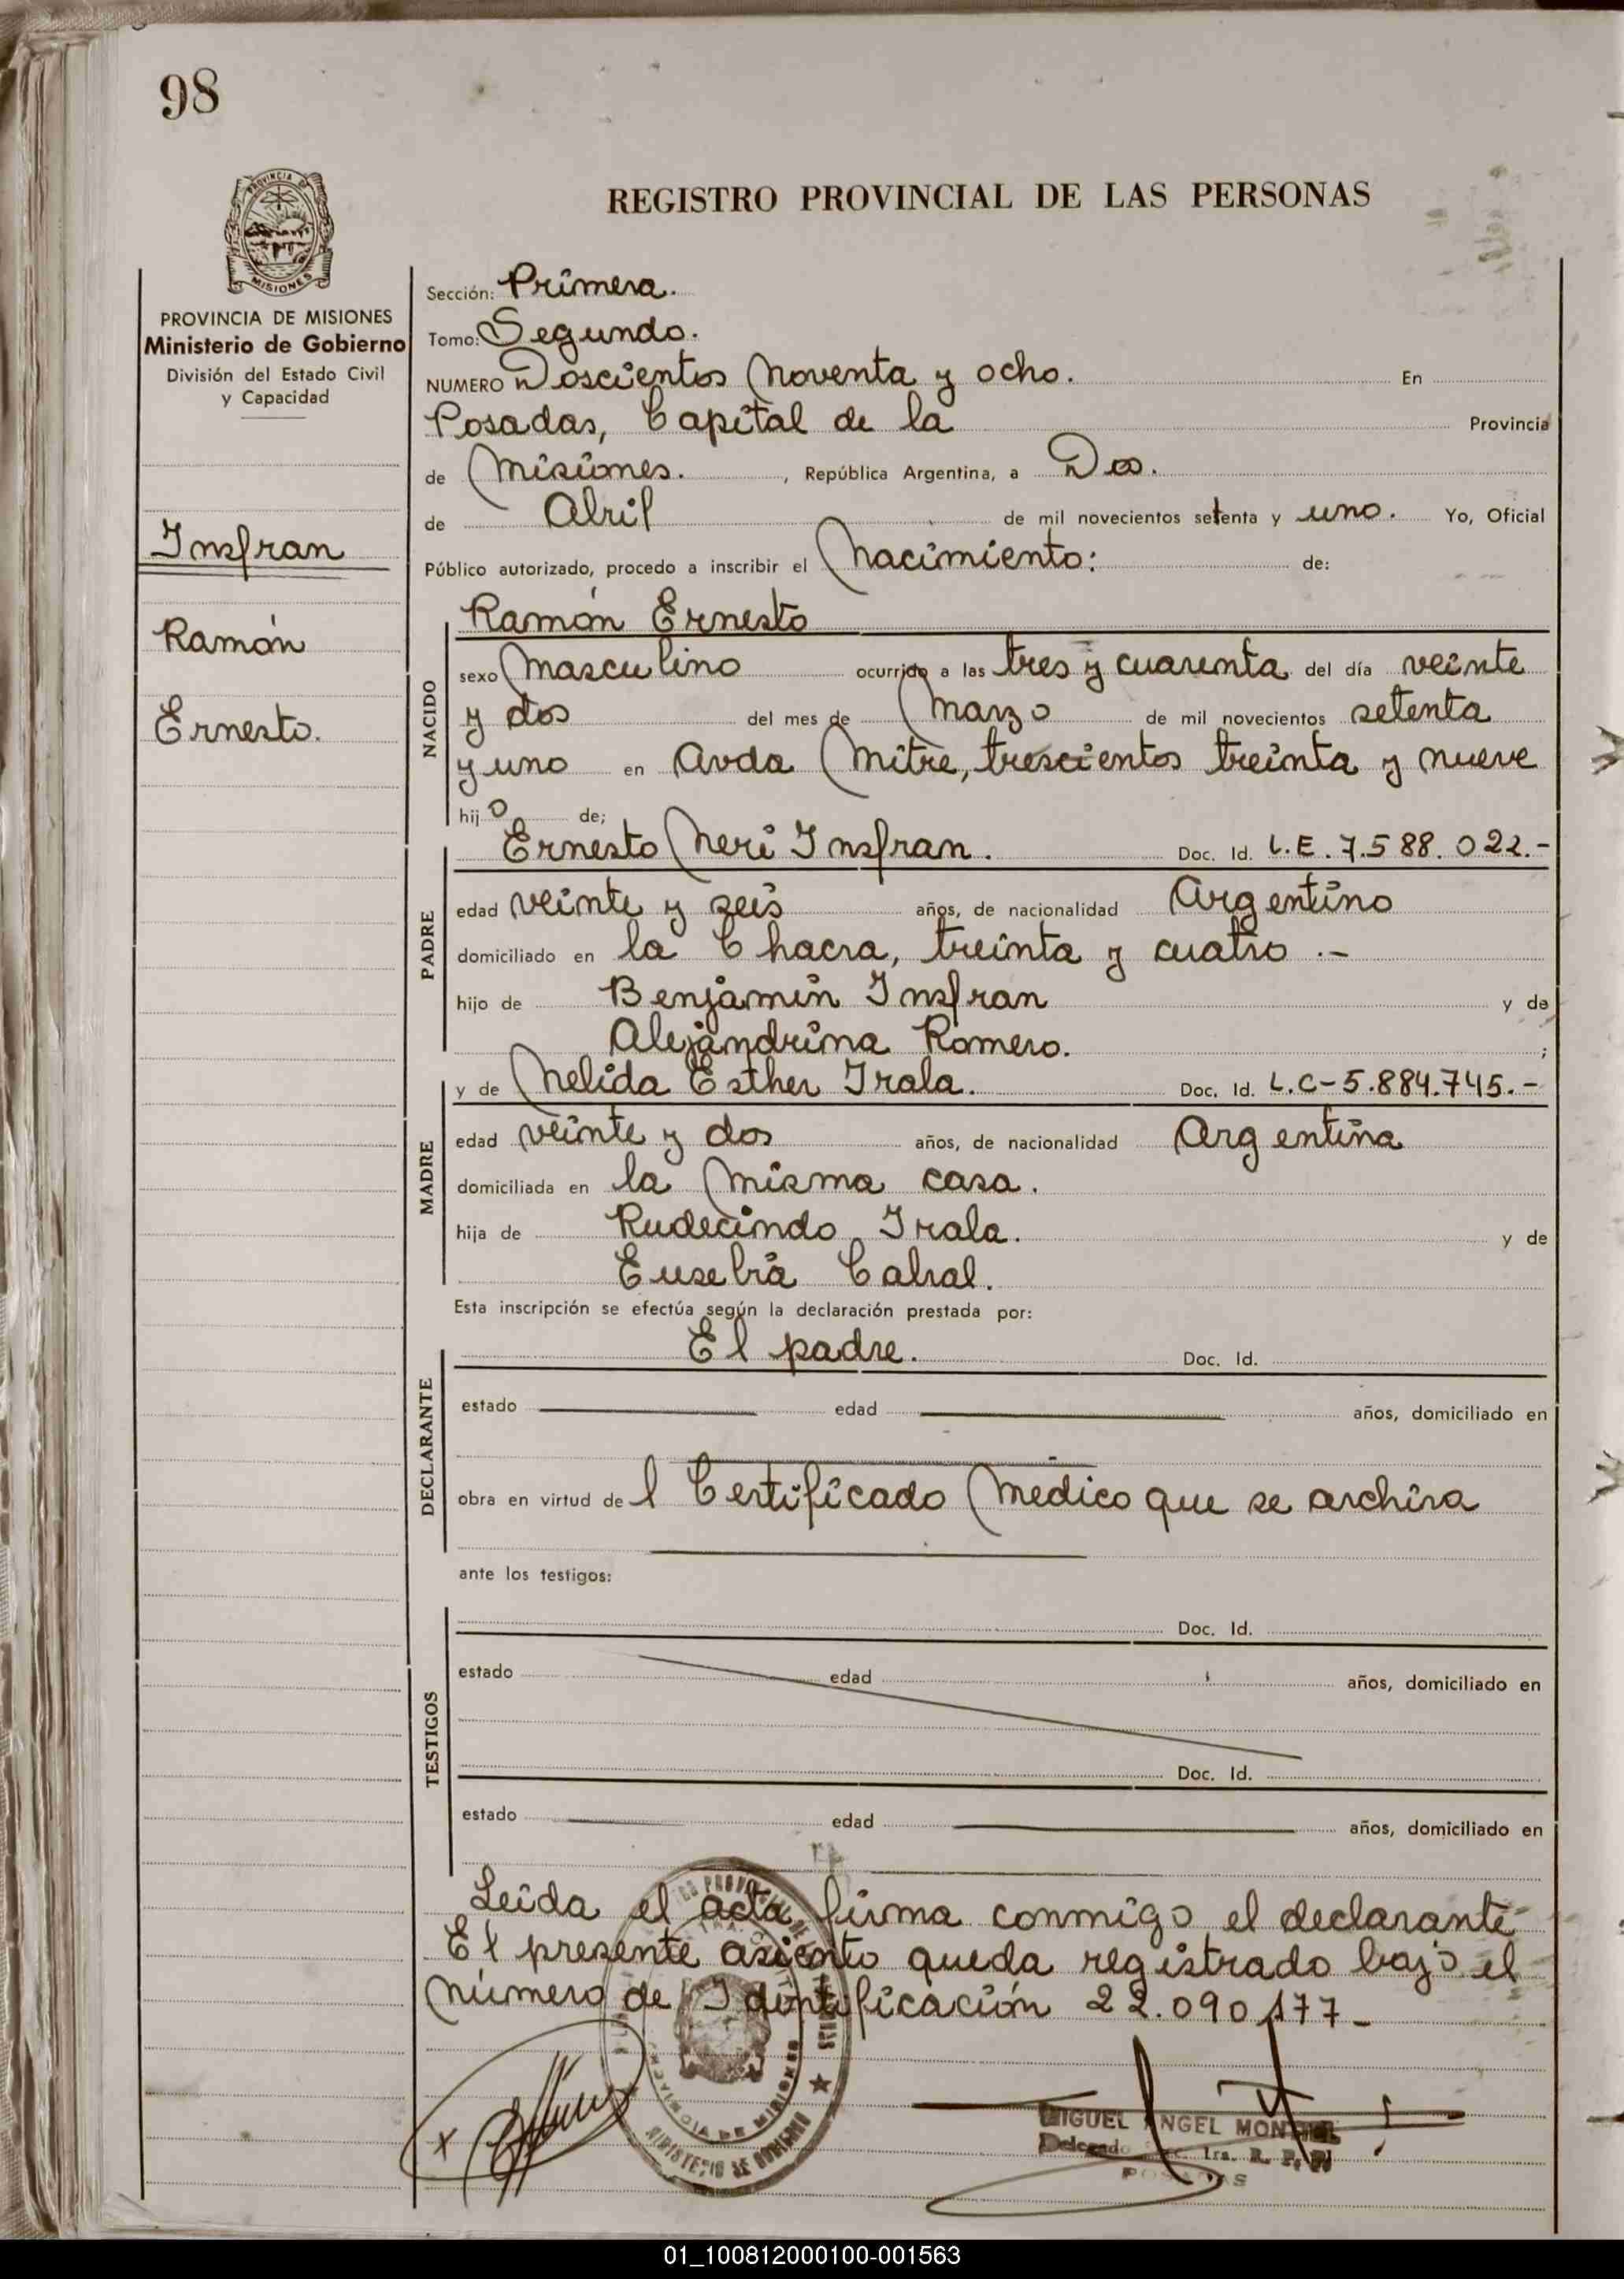 98
PROVINCIA DE
MISIONES
REGISTRO PROVINCIAL DE LAS PERSONAS
PROVINCIA DE MISIONES
Ministerio de Gobierno
División del Estado Civil
y Capacidad
Insfran
Ramón
Ernesto.
Sección: Primera.
Tomo: Segundo.
NUMERO Doscientos Noventa y ocho. En
Posadas, Capital de la Provincia
de Misiones. , República Argentina, a Dos.
de Abril de mil novecientos setenta y uno. Yo, Oficial
Público autorizado, procedo a inscribir el Nacimiento: de:
NACIDO
Ramón Ernesto
sexo Masculino ocurrido a las tres y cuarenta del día veinte
y dos del mes de Marzo de mil novecientos setenta
y uno en Avda Mitre, trescientos treinta y nueve
hijo de;
PADRE
Ernesto Neri Insfran. Doc. Id. L.E. 7.588.022.-
edad veinte y seis años, de nacionalidad Argentino
domiciliado en la Chacra, treinta y cuatro .-
hijo de Benjamin Insfran y de
Alejandrina Romero. ;
MADRE
y de Nelida Esther Irala. Doc. Id. L.C-5.884.745.-
edad veinte y dos años, de nacionalidad Argentina
domiciliada en la Misma casa.
hija de Rudecindo Irala. y de
Eusebia Cabral.
Esta inscripción se efectúa según la declaración prestada por:
DECLARANTE
El padre. Doc. Id.
estado edad años, domiciliado en
obra en virtud del Certificado Medico que se archiva
ante los testigos:
TESTIGOS
Doc. Id.
estado edad años, domiciliado en
Doc. Id.
estado edad años, domiciliado en
Leida el acta, firma conmigo el declarante
El presente asiento queda registrado bajo el
Número de Identificación 22.090.177-
PROVINCIA DE MISIONES
MINISTERIO DE GOBIERNO
MIGUEL ANGEL
Delegado Sec. 1ra. R. P. P.
POSADAS
01_100812000100-001563